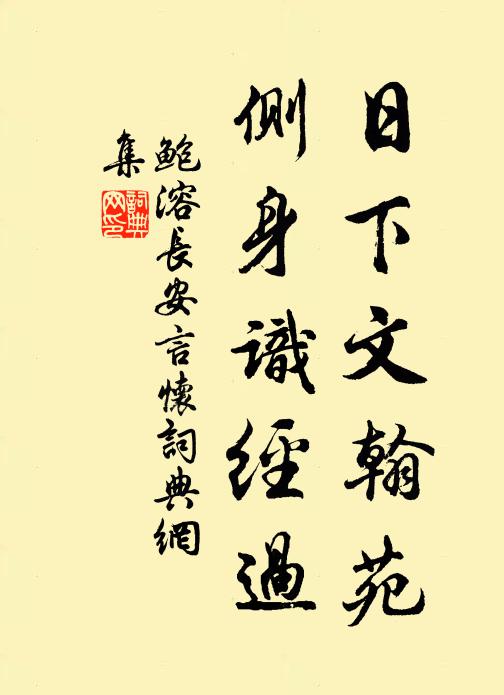 日下文翰苑
側身識經過
鮑溶長安言懷詞典網
集
詞典
网印